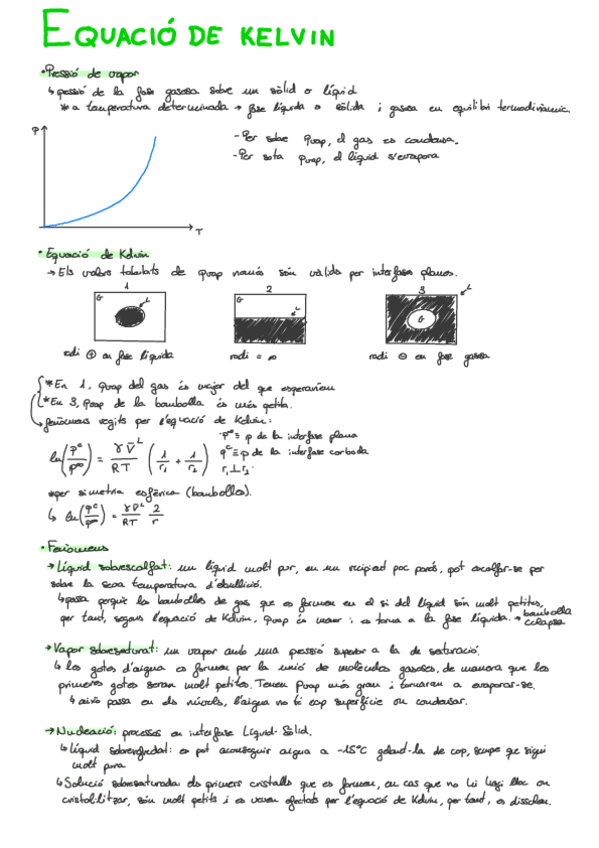 EQUACIÓ DE KELVIN
• Pressió de vapor
↳ pressió de la fase gasosa sobre un sòlid o líquid
* a temperatura determinada → fase líquida o sòlida i gasosa en equilibri termodinàmic.
P
- Per sobre Pvap, el gas es condensa.
- Per sota Pvap, el líquid s'evapora
T
• Equació de Kelvin
→ Els valors tabulats de Pvap només són vàlids per interfases planes.
1 2 3
G L G L G L
radi ⊕ en fase líquida radi = ∞ radi ⊖ en fase gasosa
* En 1, Pvap del gas és major del que esperaríem
* En 3, Pvap de la bombolla és més petita.
↳ fenòmens regits per l'equació de Kelvin:
ln(Pᶜ/P^∞) = γV̄ᴸ/RT (1/r₁ + 1/r₂)
P^∞ ≡ p de la interfase plana
Pᶜ ≡ p de la interfase corbada
r₁⊥r₂
* per simetria esfèrica (bombolles).
↳ ln(Pᶜ/P^∞) = γV̄ᴸ/RT 2/r
• Fenòmens
→ Líquid sobrescalfat: un líquid molt pur, en un recipient poc porós, pot escalfar-se per
sobre la seva temperatura d'ebullició.
↳ passa perquè les bombolles de gas que es formen en el si del líquid són molt petites,
per tant, segons l'equació de Kelvin, Pvap és menor i es torna a la fase líquida. → bombolla
col·lapsa
→ Vapor sobresaturat: un vapor amb una pressió superior a la de saturació.
↳ les gotes d'aigua es formen per la unió de molècules gasoses, de manera que les
primeres gotes seran molt petites. Tenen Pvap més gran i tornaran a evaporar-se.
↳ això passa en els núvols, l'aigua no té cap superfície on condensar.
→ Nucleació: processos en interfase Líquid-Sòlid.
↳ Líquid sobrerefredat: es pot aconseguir aigua a -15°C gelant-la de cop, sempre que sigui
molt pura
↳ Solució sobresaturada: els primers cristalls que es formen, en cas que no hi hagi lloc on
cristal·litzar, són molt petits i es veuen afectats per l'equació de Kelvin, per tant, es dissolen.